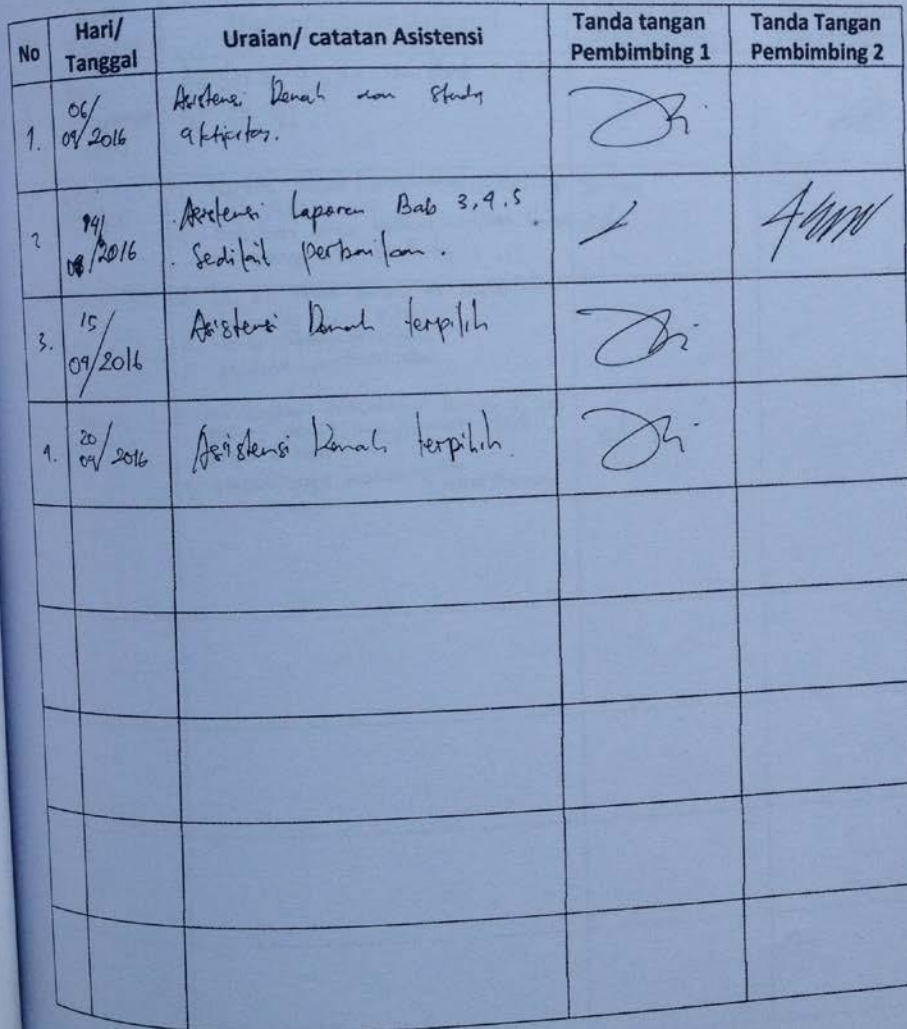 No
Hari/
Tanggal
Uraian/ catatan Asistensi
Tanda tangan
Pembimbing 1
Tanda Tangan
Pembimbing 2
1.
06/
09/2016
Asistensi Denah dan Study
aktifitas.
2
14/
09/2016
. Asistensi Laporan Bab 3,4.5
. Sedikit perbaikan.
3.
15/
09/2016
Asistensi Denah terpilih
4.
20/
09/2016
Asistensi Denah terpilih.